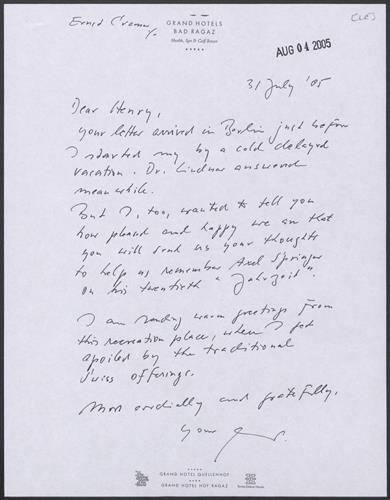 Ernst Cramer
GRAND HOTELS
BAD RAGAZ
Health, Spa & Golf Resort
AUG 04 2005
31 July '05
Dear Henry,
your letter arrived in Berlin just before
I started my by a cold delayed
vacation. Dr. Lindner answered
meanwhile.
But I, too, wanted to tell you
how pleased and happy we are that
you will send us your thoughts
to help us remember Axel Springer
on his twentieth "Jahrzeit".
I am sending warm greetings from
this recreation place, where I get
spoiled by the traditional
Swiss offerings.
Most cordially and gratefully,
your
GRAND HOTEL QUELLENHOF
GRAND HOTEL HOF RAGAZ